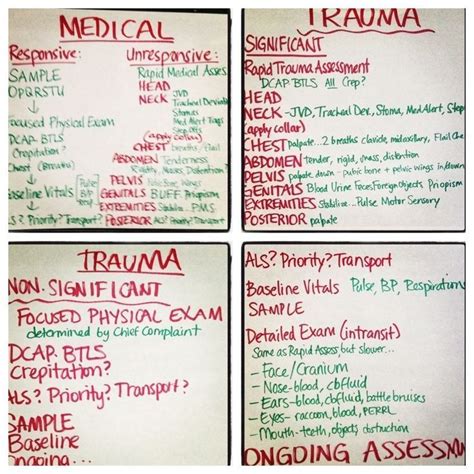 MEDICAL
Responsive:
SAMPLE
OPQRSTU
Focused Physical Exam
DCAP-BTLS
Crepitation?
Chest (Breaths)
Baseline Vitals
Pulse
BP
Temp
ALS? Priority? Transport?
Unresponsive:
Rapid Medical Assess
HEAD
NECK JVD
Tracheal Deviation
Stomas
Med Alert Tags
(apply collar)
CHEST breaths/flail
ABDOMEN Tenderness
Rigidity, Masses, Distention?
PELVIS
GENITALS BUFF Priopism
EXTREMITIES Stabilize PMS
POSTERIOR ALS? Priority? Transport?
TRAUMA
SIGNIFICANT
Rapid Trauma Assessment
DCAP-BTLS All Crep?
HEAD
NECK-JVD, Tracheal Dev., Stoma, Med Alert, Step
(apply collar)
CHEST palpate...2 breaths clavicle, midaxillary, Flail Che
ABDOMEN tender, rigid, mass, distention
PELVIS palpate down - pubic bone + pelvic wings in+down
GENITALS Blood Urine Feces Foreign Objects Priopism
EXTREMITIES Stabilize...Pulse Motor Sensory
POSTERIOR palpate
TRAUMA
NON-SIGNIFICANT
FOCUSED PHYSICAL EXAM
determined by Chief Complaint
DCAP-BTLS
Crepitation?
ALS? Priority? Transport?
SAMPLE
Baseline
Ongoing...
ALS? Priority? Transport
Baseline Vitals Pulse, BP, Respiration
SAMPLE
Detailed Exam (intransit)
Same as Rapid Assess but slower...
- Face/Cranium
- Nose-blood, cbfluid
- Ears-blood, cbfluid, battle bruises
- Eyes- raccoon, blood, PERRL
- Mouth-teeth, objects obstruction
ONGOING ASSESSM